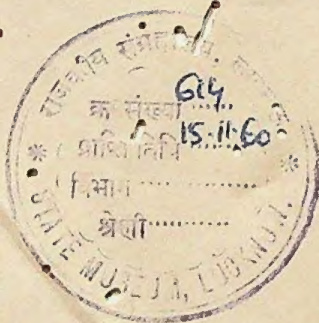 राजकीय संग्रहालय,
क्र० संख्या 614
प्राप्ति तिथि 15.11.60
विभाग
श्रेणी
STATE MUSEUM, LUCKNOW.